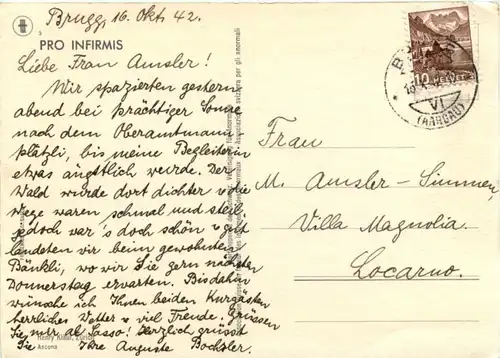 Brugg, 16. Okt. 42.
3
PRO INFIRMIS
Liebe Frau Amsler!
Wir spazierten gestern
abend bei prächtiger Sonne
nach dem Oberamtmann-
plätzli, bis meine Begleiterin
etwas ängstlich wurde. Der
Wald wurde dort dichter u. die
Wege waren schmal und steil,
jedoch war's doch schön u. gut
landeten wir beim gewohnten
Bänkli, wo wir Sie gern nächsten
Donnerstag erwarten. Bis dahin
wünsche ich Ihnen beiden Kurgästen
herrliches Wetter u. viel Freude. Grüssen
Sie mir ab Sasso! Herzlich grüsst
Sie Ihre Auguste Bochsler.
Ascona
10
HELVETIA
VI
(AARGAU)
Frau
M. Amsler-Simmen,
Villa Magnolia.
Locarno.